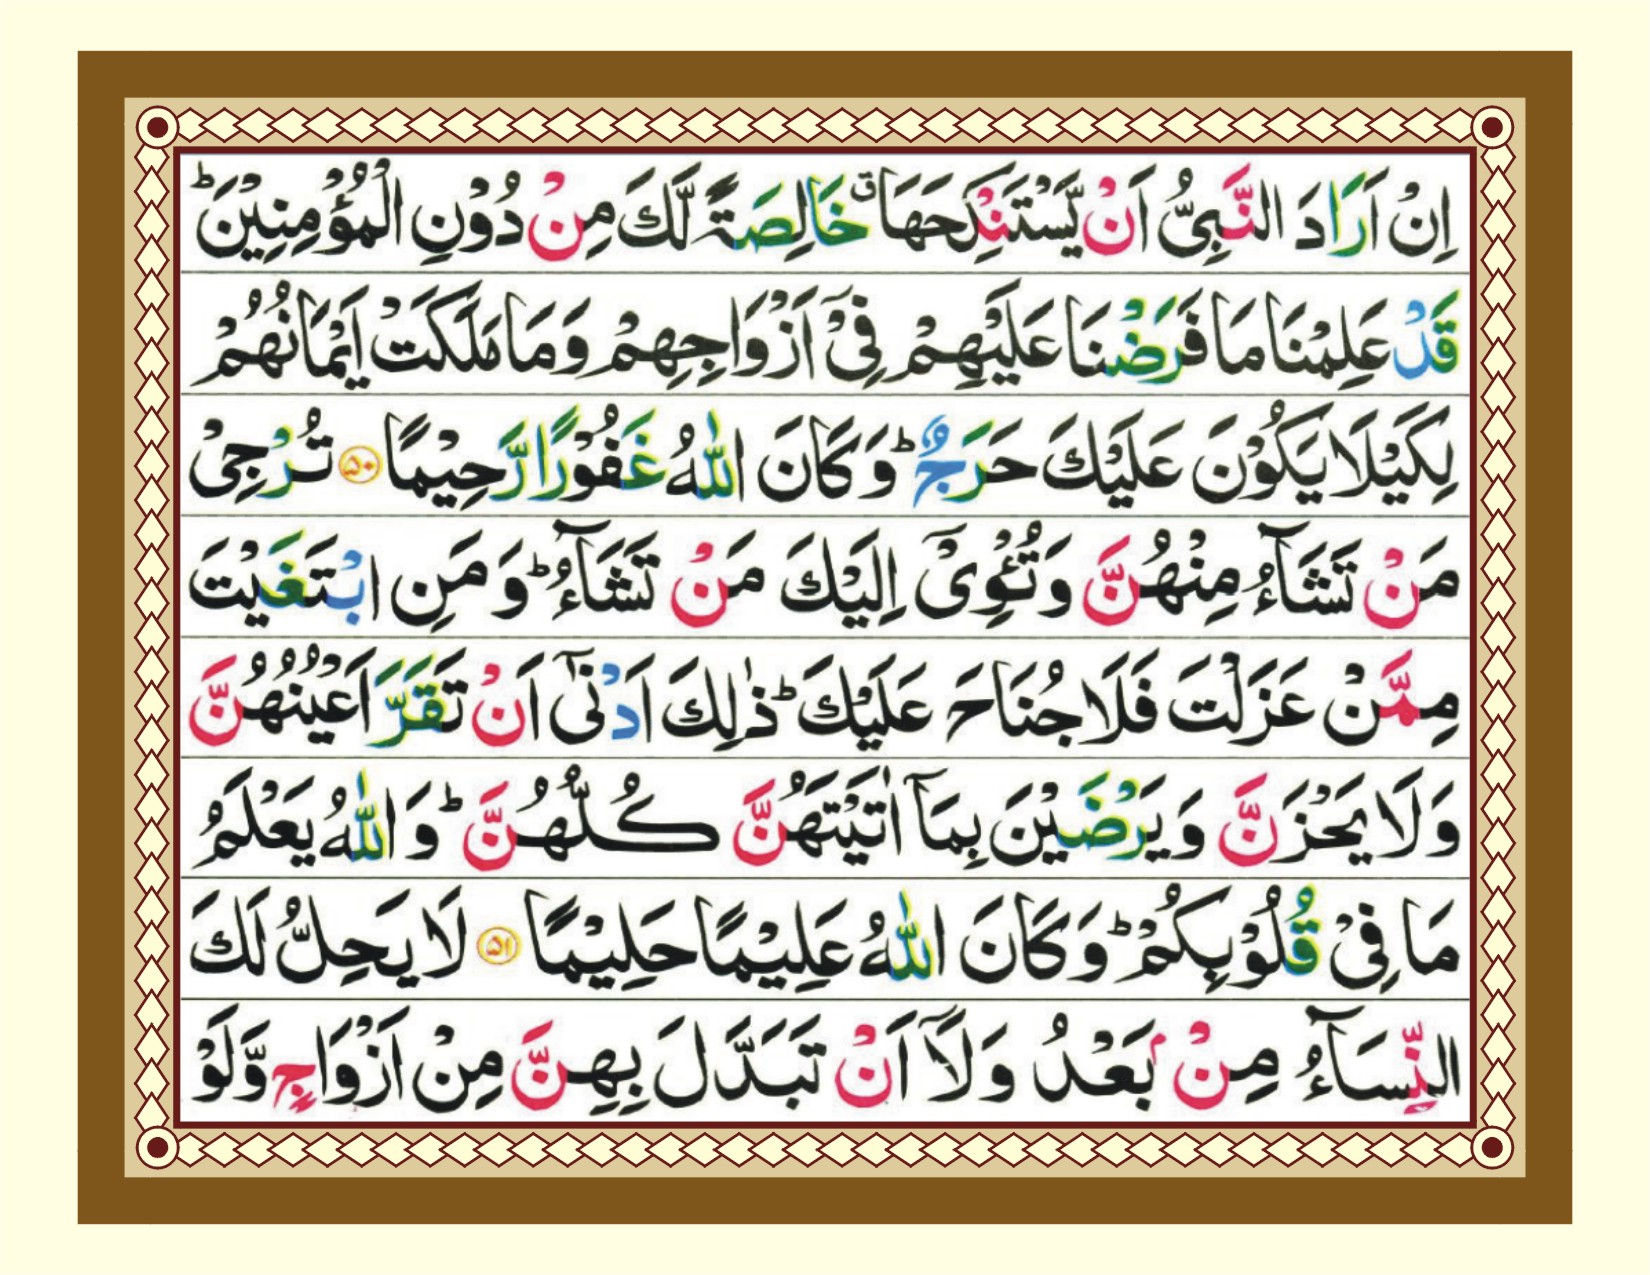 اِنْ اَرَادَ النَّبِىُّ اَنْ يَّسْتَنْكِحَهَا ۗ خَالِصَةً لَّكَ مِنْ دُوْنِ الْمُؤْمِنِيْنَ ؕ
قَدْ عَلِمْنَا مَا فَرَضْنَا عَلَيْهِمْ فِىْۤ اَزْوَاجِهِمْ وَمَا مَلَكَتْ اَيْمَانُهُمْ
لِكَيْلَا يَكُوْنَ عَلَيْكَ حَرَجٌ ؕ وَكَانَ اللّٰهُ غَفُوْرًا رَّحِيْمًا ۵۰ تُرْجِىْ
مَنْ تَشَآءُ مِنْهُنَّ وَتُـْٔوِىْۤ اِلَيْكَ مَنْ تَشَآءُ ؕ وَمَنِ ابْتَغَيْتَ
مِمَّنْ عَزَلْتَ فَلَا جُنَاحَ عَلَيْكَ ؕ ذٰلِكَ اَدْنٰٓى اَنْ تَقَرَّ اَعْيُنُهُنَّ
وَلَا يَحْزَنَّ وَيَرْضَيْنَ بِمَاۤ اٰتَيْتَهُنَّ كُلُّهُنَّ ؕ وَاللّٰهُ يَعْلَمُ
مَا فِىْ قُلُوْبِكُمْ ؕ وَكَانَ اللّٰهُ عَلِيْمًا حَلِيْمًا ۵۱ لَا يَحِلُّ لَكَ
النِّسَآءُ مِنْۢ بَعْدُ وَلَاۤ اَنْ تَبَدَّلَ بِهِنَّ مِنْ اَزْوَاجٍ وَّلَوْ